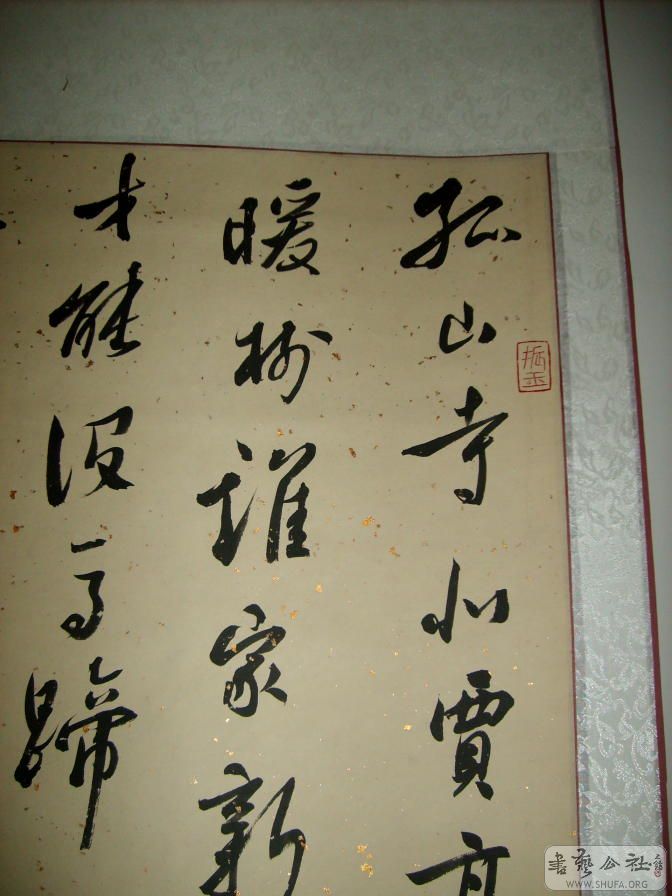 孤山寺北賈亭
暖樹誰家新
才能没馬蹄
書藝公社
WWW.SHUFA.ORG